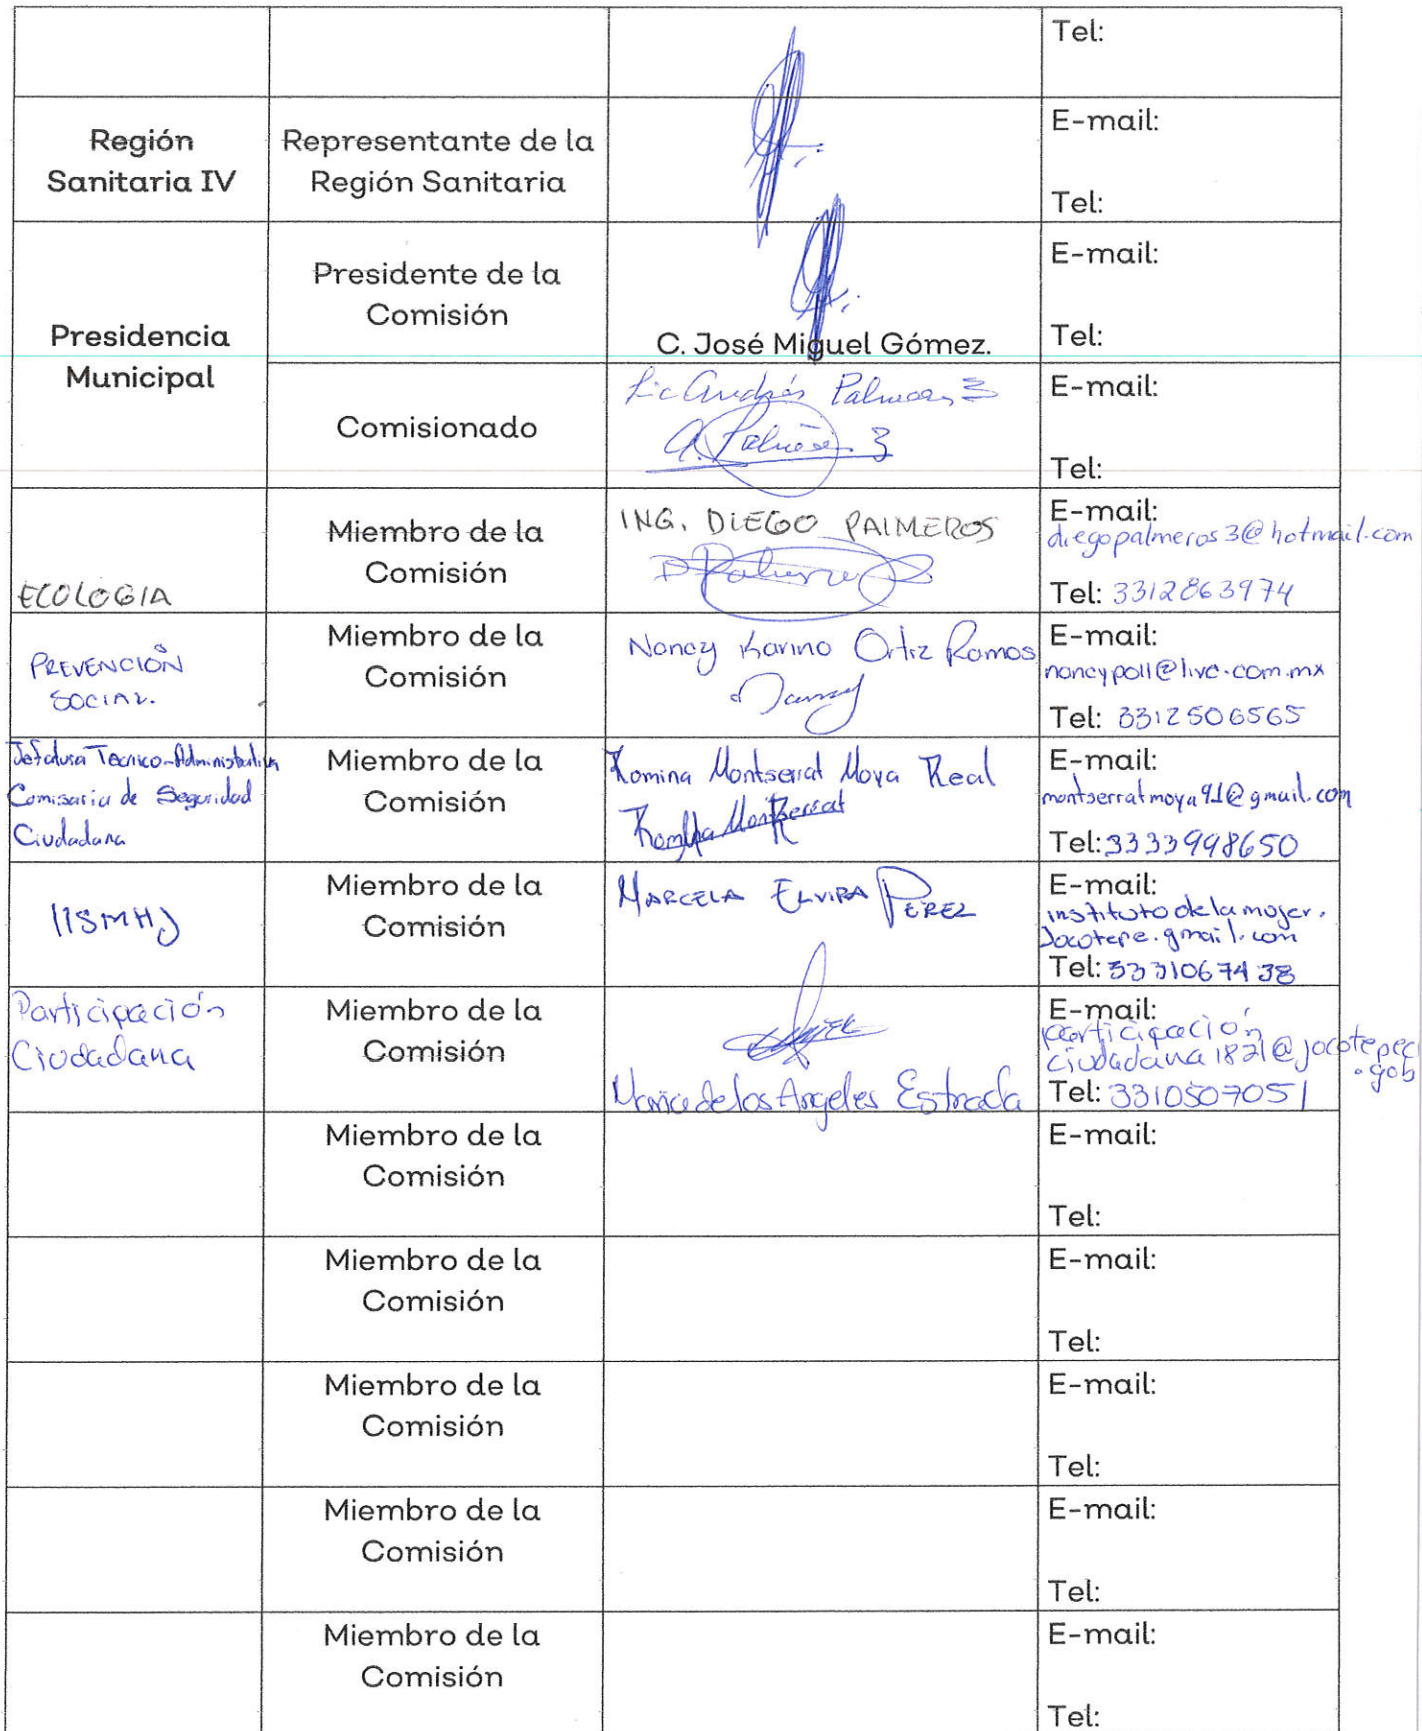 Tel:
Región
Sanitaria IV
Representante de la
Región Sanitaria
E-mail:
Tel:
Presidencia
Municipal
Presidente de la
Comisión
C. José Miguel Gómez.
E-mail:
Tel:
Comisionado
Lic Andrés
E-mail:
Tel:
ECOLOGIA
Miembro de la
Comisión
ING. DIEGO PALMEROS
E-mail:
diegopalmeros3@hotmail.com
Tel: 3312863974
PREVENCIÓN
SOCIAL.
Miembro de la
Comisión
Nancy Karina Ortiz Ramos
Nancy
E-mail:
nancypoll@live.com.mx
Tel: 3312506565
Jefatura Tecnico-Administrativa
Comisaria de Seguridad
Ciudadana
Miembro de la
Comisión
Romina Montserrat Moya Real
Romina Montserrat
E-mail:
montserratmoya91@gmail.com
Tel: 3333998650
IISMHJ
Miembro de la
Comisión
MARCELA ELVIRA PEREZ
E-mail:
institutodelamujer.
Jocotepe.gmail.com
Tel: 3331067438
Participación
Ciudadana
Miembro de la
Comisión
Maria de los Angeles Estrada
E-mail:
participación
ciudadana1821@jocotepec
.gob
Tel: 3310507051
Miembro de la
Comisión
E-mail:
Tel:
Miembro de la
Comisión
E-mail:
Tel:
Miembro de la
Comisión
E-mail:
Tel:
Miembro de la
Comisión
E-mail:
Tel:
Miembro de la
Comisión
E-mail:
Tel: